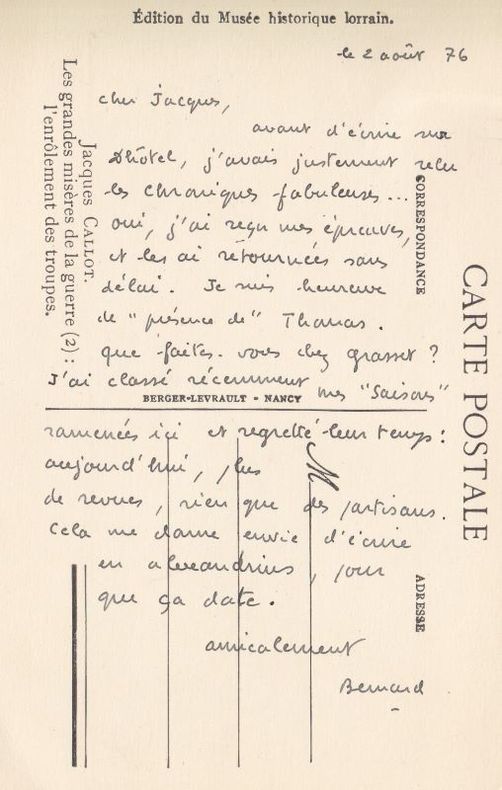 Édition du Musée historique lorrain.
le 2 août 76
cher Jacques,
avant d'écrire sur
Dhôtel, j'avais justement relu
les chroniques fabuleuses...
oui, j'ai reçu mes épreuves,
et les ai retournées sans
délai. Je suis heureux
de "présence de" Thomas.
que faites-vous chez grasset ?
J'ai classé récemment mes "Saisons"
ramenées ici et regretté leur temps :
aujourd'hui, plus
de revues, rien que des partisans.
Cela me donne envie d'écrire
en alexandrins, pour
que ça date.
amicalement
Bernard
Jacques CALLOT.
Les grandes misères de la guerre (2) :
l'enrôlement des troupes.
BERGER-LEVRAULT - NANCY
M
CORRESPONDANCE
CARTE POSTALE
ADRESSE